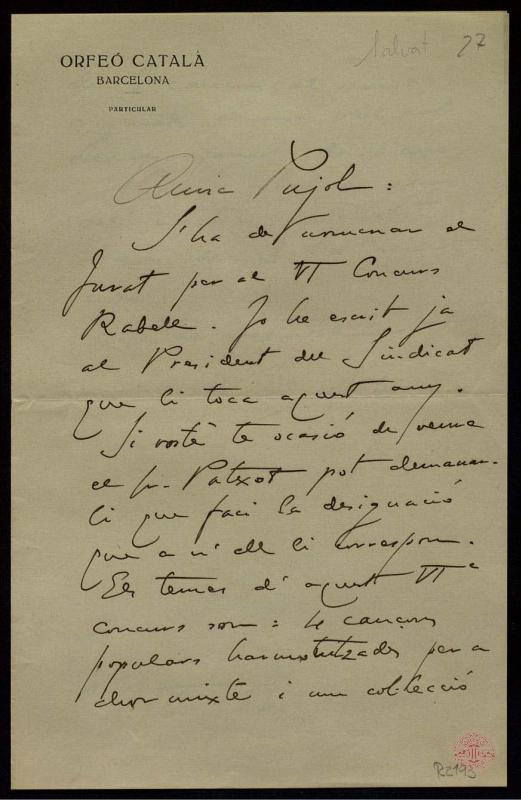 ORFEÓ CATALÀ
BARCELONA
PARTICULAR
Salvat 27
Amic Pujol:
S'ha de anomenar el
Jurat per al VI Concurs
Rabell. Jo he escrit ja
al President del Sindicat
que li toca aquet any.
Si vostè te ocasió de veure
el Sr. Patxot pot demanar-
li que faci la designació
que a n'ell li correspon.
Els temes d'aquet VIè
Concurs son: 12 cançons
populars harmonitzades per a
chor mixte i una col·lecció
R2193